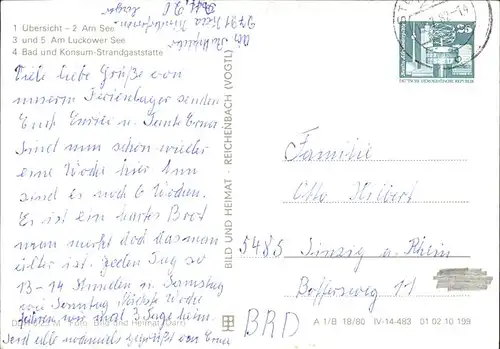 1 Übersicht – 2 Am See
3 und 5 Am Luckower See
4 Bad und Konsum-Strandgaststätte
Viele liebe Grüße von
unserm Ferienlager senden
Euch Enrico u. Tante Erna.
Sind nun schon wieder
eine Woche hier nun
sind es noch 6 Wochen.
Es ist ein hartes Brot
man merkt doch das man
älter ist. jeden Tag so
13 - 14 Stunden u. Samstag
wie Sonntag. Nächste Woche
fahren wir mal 3 Tage heim.
Seid alle nochmals gegrüßt von Erna
Bild und Heimat
BILD UND HEIMAT · REICHENBACH (VOGTL)
25
DEUTSCHE DEMOKRATISCHE REPUBLIK
Familie
Otto Hilbert
5485 Sinzig a. Rhein
Bofferweg 11
BRD
A 1/B 18/80 IV-14-483 01 02 10 199